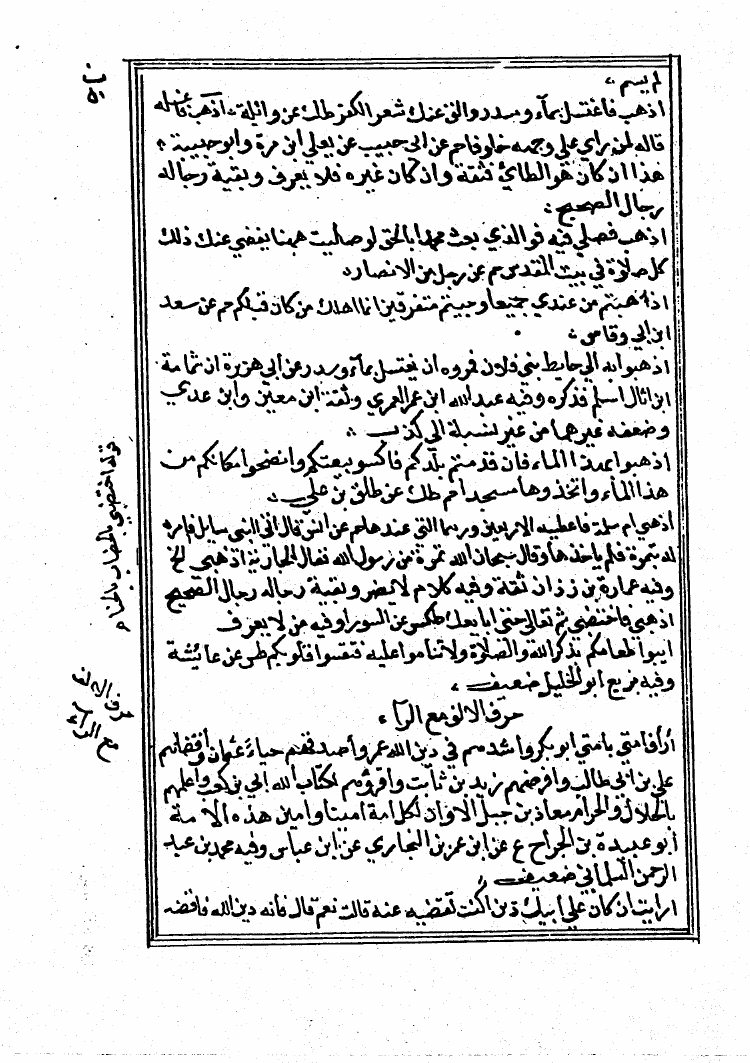 لم يسم
اذهب فاغتسل بمآء وسدر والق عنك شعر الكفر طك عن واثلة اذهب فاغسله
قاله لمن راي علي وجهه خلوقا حم عن ابي حبيب عن يعلي ابن مرة وابو حبيبة
هذا ان كان هو الطائي فثقة وان كان غيره فلا يعرف وبقية رجاله
رجال الصحيح
اذهب فصلي فيه فو الذي بعث محمدا بالحق لو صاليت ههنا يقضي عنك ذلك
كل صلاة في بيت المقدس حم عن رجل من الانصار
اذا هبتم من عندي جميعا وجيتم متفرقين انما اهلك من كان قبلكم حم عن سعد
ابن ابي وقاص
اذهبوا به الي حايط بني فلان فمروه ان يغتسل بمآء وسدر عن ابي هريرة ان ثمامة
ابن اثال اسلم فذكره وفيه عبد الله ابن عمر العمري وثقه ابن معين وابن عدي
وضعفه غيرهما من غير نسبة الي كذب
اذهبوا بهذا الماء فان قدمتم بلدكم فاكسروا بيعتكم وانضحوا مكانكم من
هذا المآء واتخذوها مسجدا حم طك عن طلق بن علي
اذهبي ام سلمة فاعطيه الاربعين وربما التي عندها حم عن انس قال اتي النبي سايل فامر
له بتمرة فلم ياخذها وقال سبحان الله تمرة من رسول الله فقال للجارية اذهبي الخ
وفيه عمارة بن زذان ثقة وفيه كلام لا يضر وبقية رجاله رجال الصحيح
اذهبي فاختضبي ثم تعالي حتي ابايعك طكس عن السورا وفيه من لا يعرف
اذيبوا طعامكم بذكر الله والصلاة ولا تناموا عليه فتقسوا قلوبكم طس عن عايشة
وفيه بزيع ابو الخليل ضعيف
حرف الالف مع الرآء
أرأف امتي بامتي ابو بكر واشدهم في دين الله عمر واصدقهم حياءً عثمان واقضاهم
علي بن ابي طالب وافرضهم زيد بن ثابت واقرؤهم لكتاب الله ابي بن كعب واعلمهم
بالحلال والحرام معاذ بن جبل الا وان لكل امة امينا وامين هذه الامة
أبو عبيدة بن الجراح ع عن ابن عمر بن النجاري عن ابن عباس وفيه محمد بن عبد
الرحمن البيلماني ضعيف
ارايت ان كان علي ابيك دين اكنت تقضيه عنه قالت نعم قال فانه دين الله فاقضه
قوله اختضبي بالخضاب بالحناء
حرف الالف
مع الراء